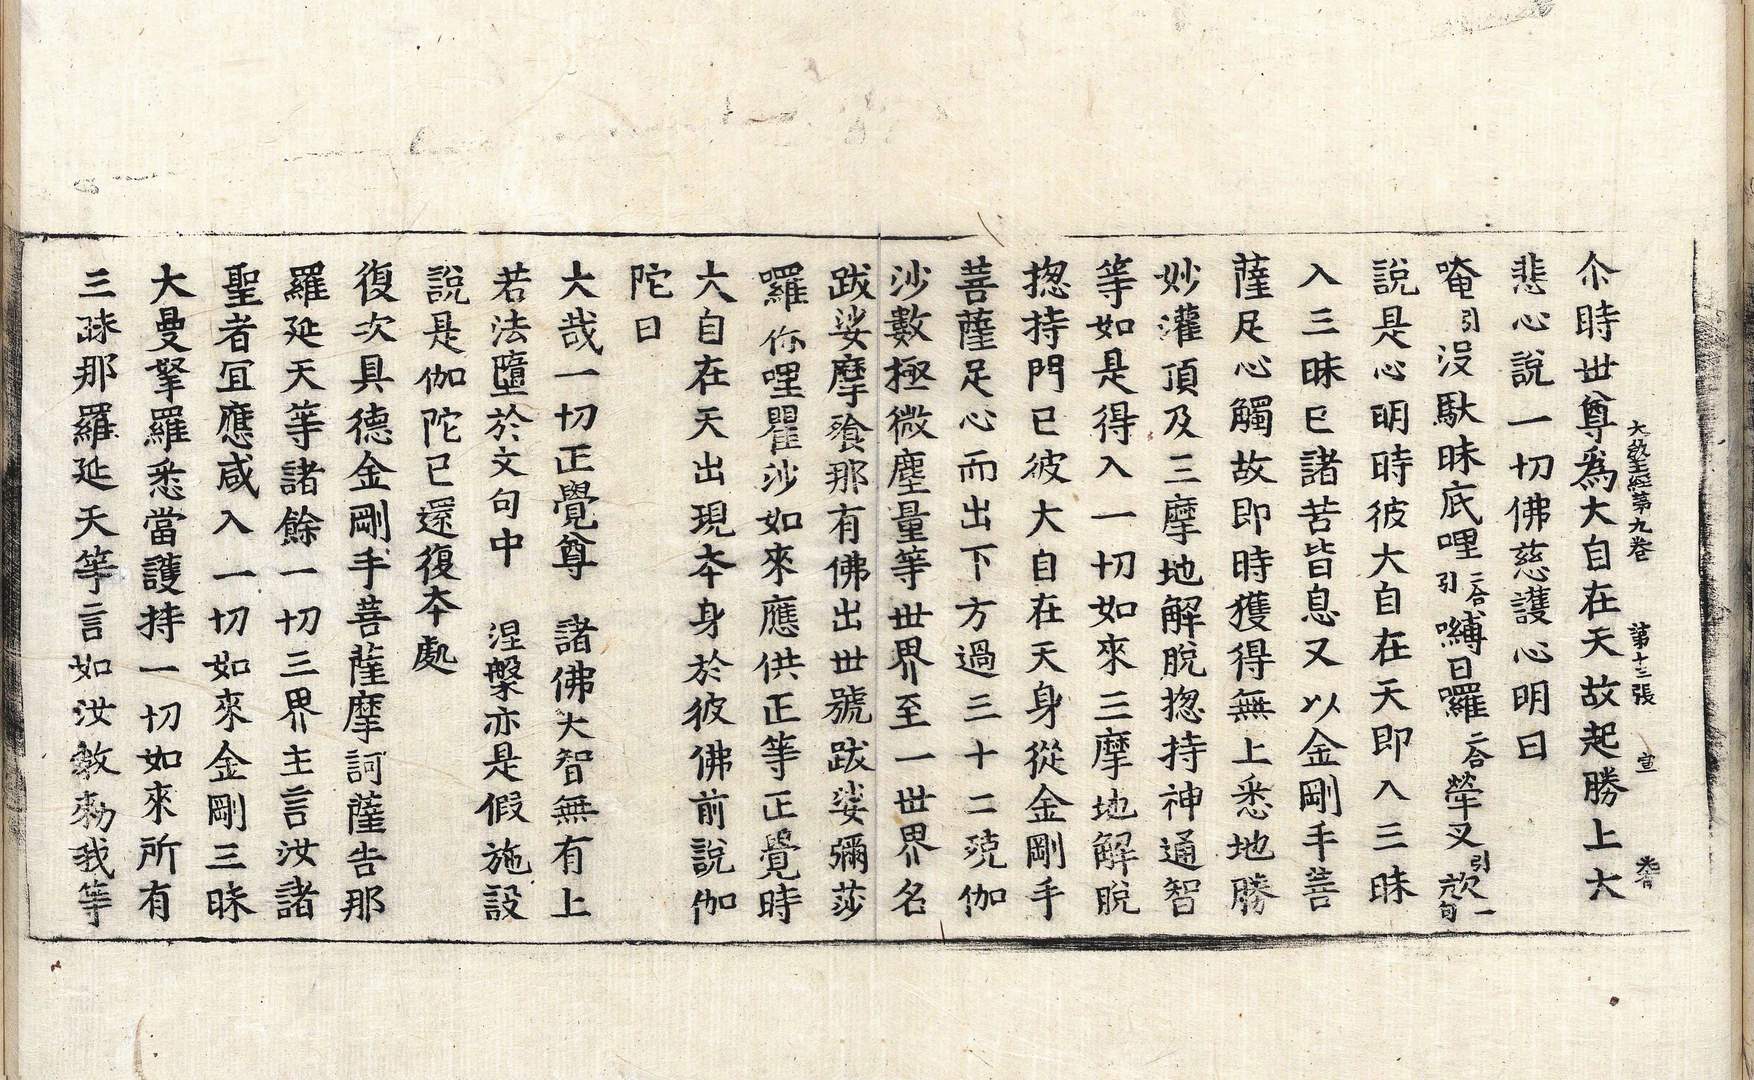 大教王經第九卷　第十三張　宣
尒時世尊爲大自在天故起勝上大
悲心說一切佛慈護心明曰
唵引沒馱昧底哩二合引嚩日囉二合犖叉引㰠一句
說是心明時彼大自在天即入三昧
入三昧已諸苦皆息又以金剛手菩
薩足心觸故即時獲得無上悉地勝
妙灌頂及三摩地解脫揔持神通智
等如是得入一切如來三摩地解脫
揔持門已彼大自在天身從金剛手
菩薩足心而出下方過三十二殑伽
沙數極微塵量等世界至一世界名
跋娑摩餐那有佛出世號跋娑彌莎
囉你哩瞿沙如來應供正等正覺時
大自在天出現本身於彼佛前說伽
陀曰
大哉一切正覺尊　諸佛大智無有上
若法墮於文句中　涅槃亦是假施設
說是伽陀已還復本處
復次具德金剛手菩薩摩訶薩告那
羅延天等諸餘一切三界主言汝諸
聖者宜應咸入一切如來金剛三昧
大曼拏羅悉當護持一切如來所有
三昧那羅延天等言如汝教勑我等